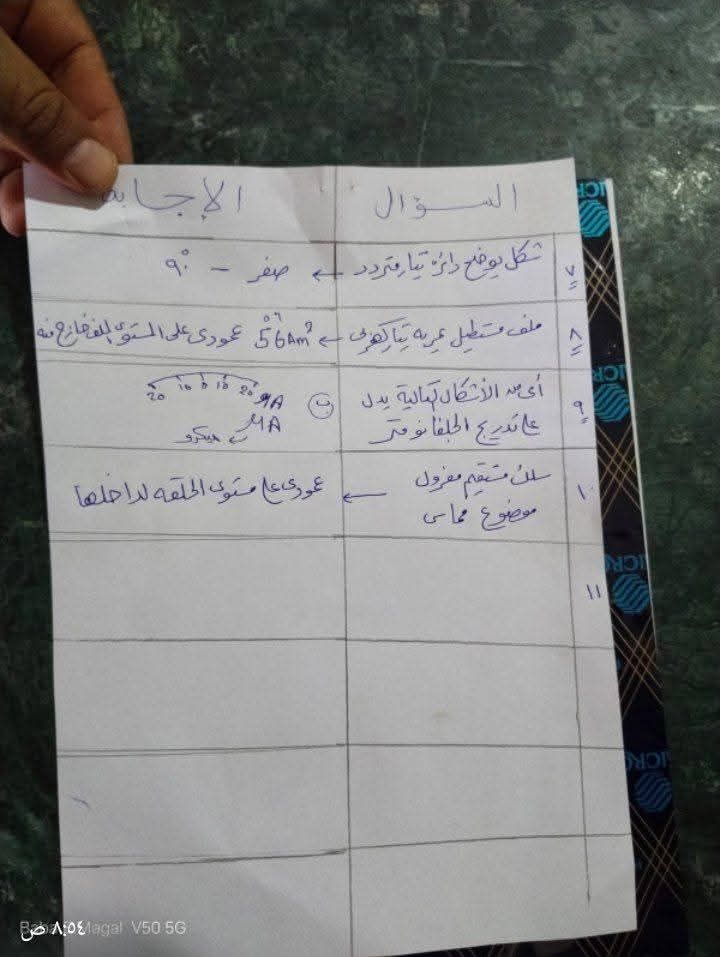 السؤال
الإجابة
٧ شكل يوضح دائرة تيار متردد ← صفر - ٩٠°
٨ ملف مستطيل يمر به تيار كهربي ← 56Am² عمودى على المستوى للخارج منه
٩ أى من الأشكال التالية يدل
على تدريج الجلفانومتر
ب
20 10 0 10 20 μA
μA
ميكرو
١٠ سلك مستقيم معزول
موضوع مماس
← عمودى على مستوى الحلقه لداخلها
١١
MICRO
V50 5G
٨:٥٤ ص